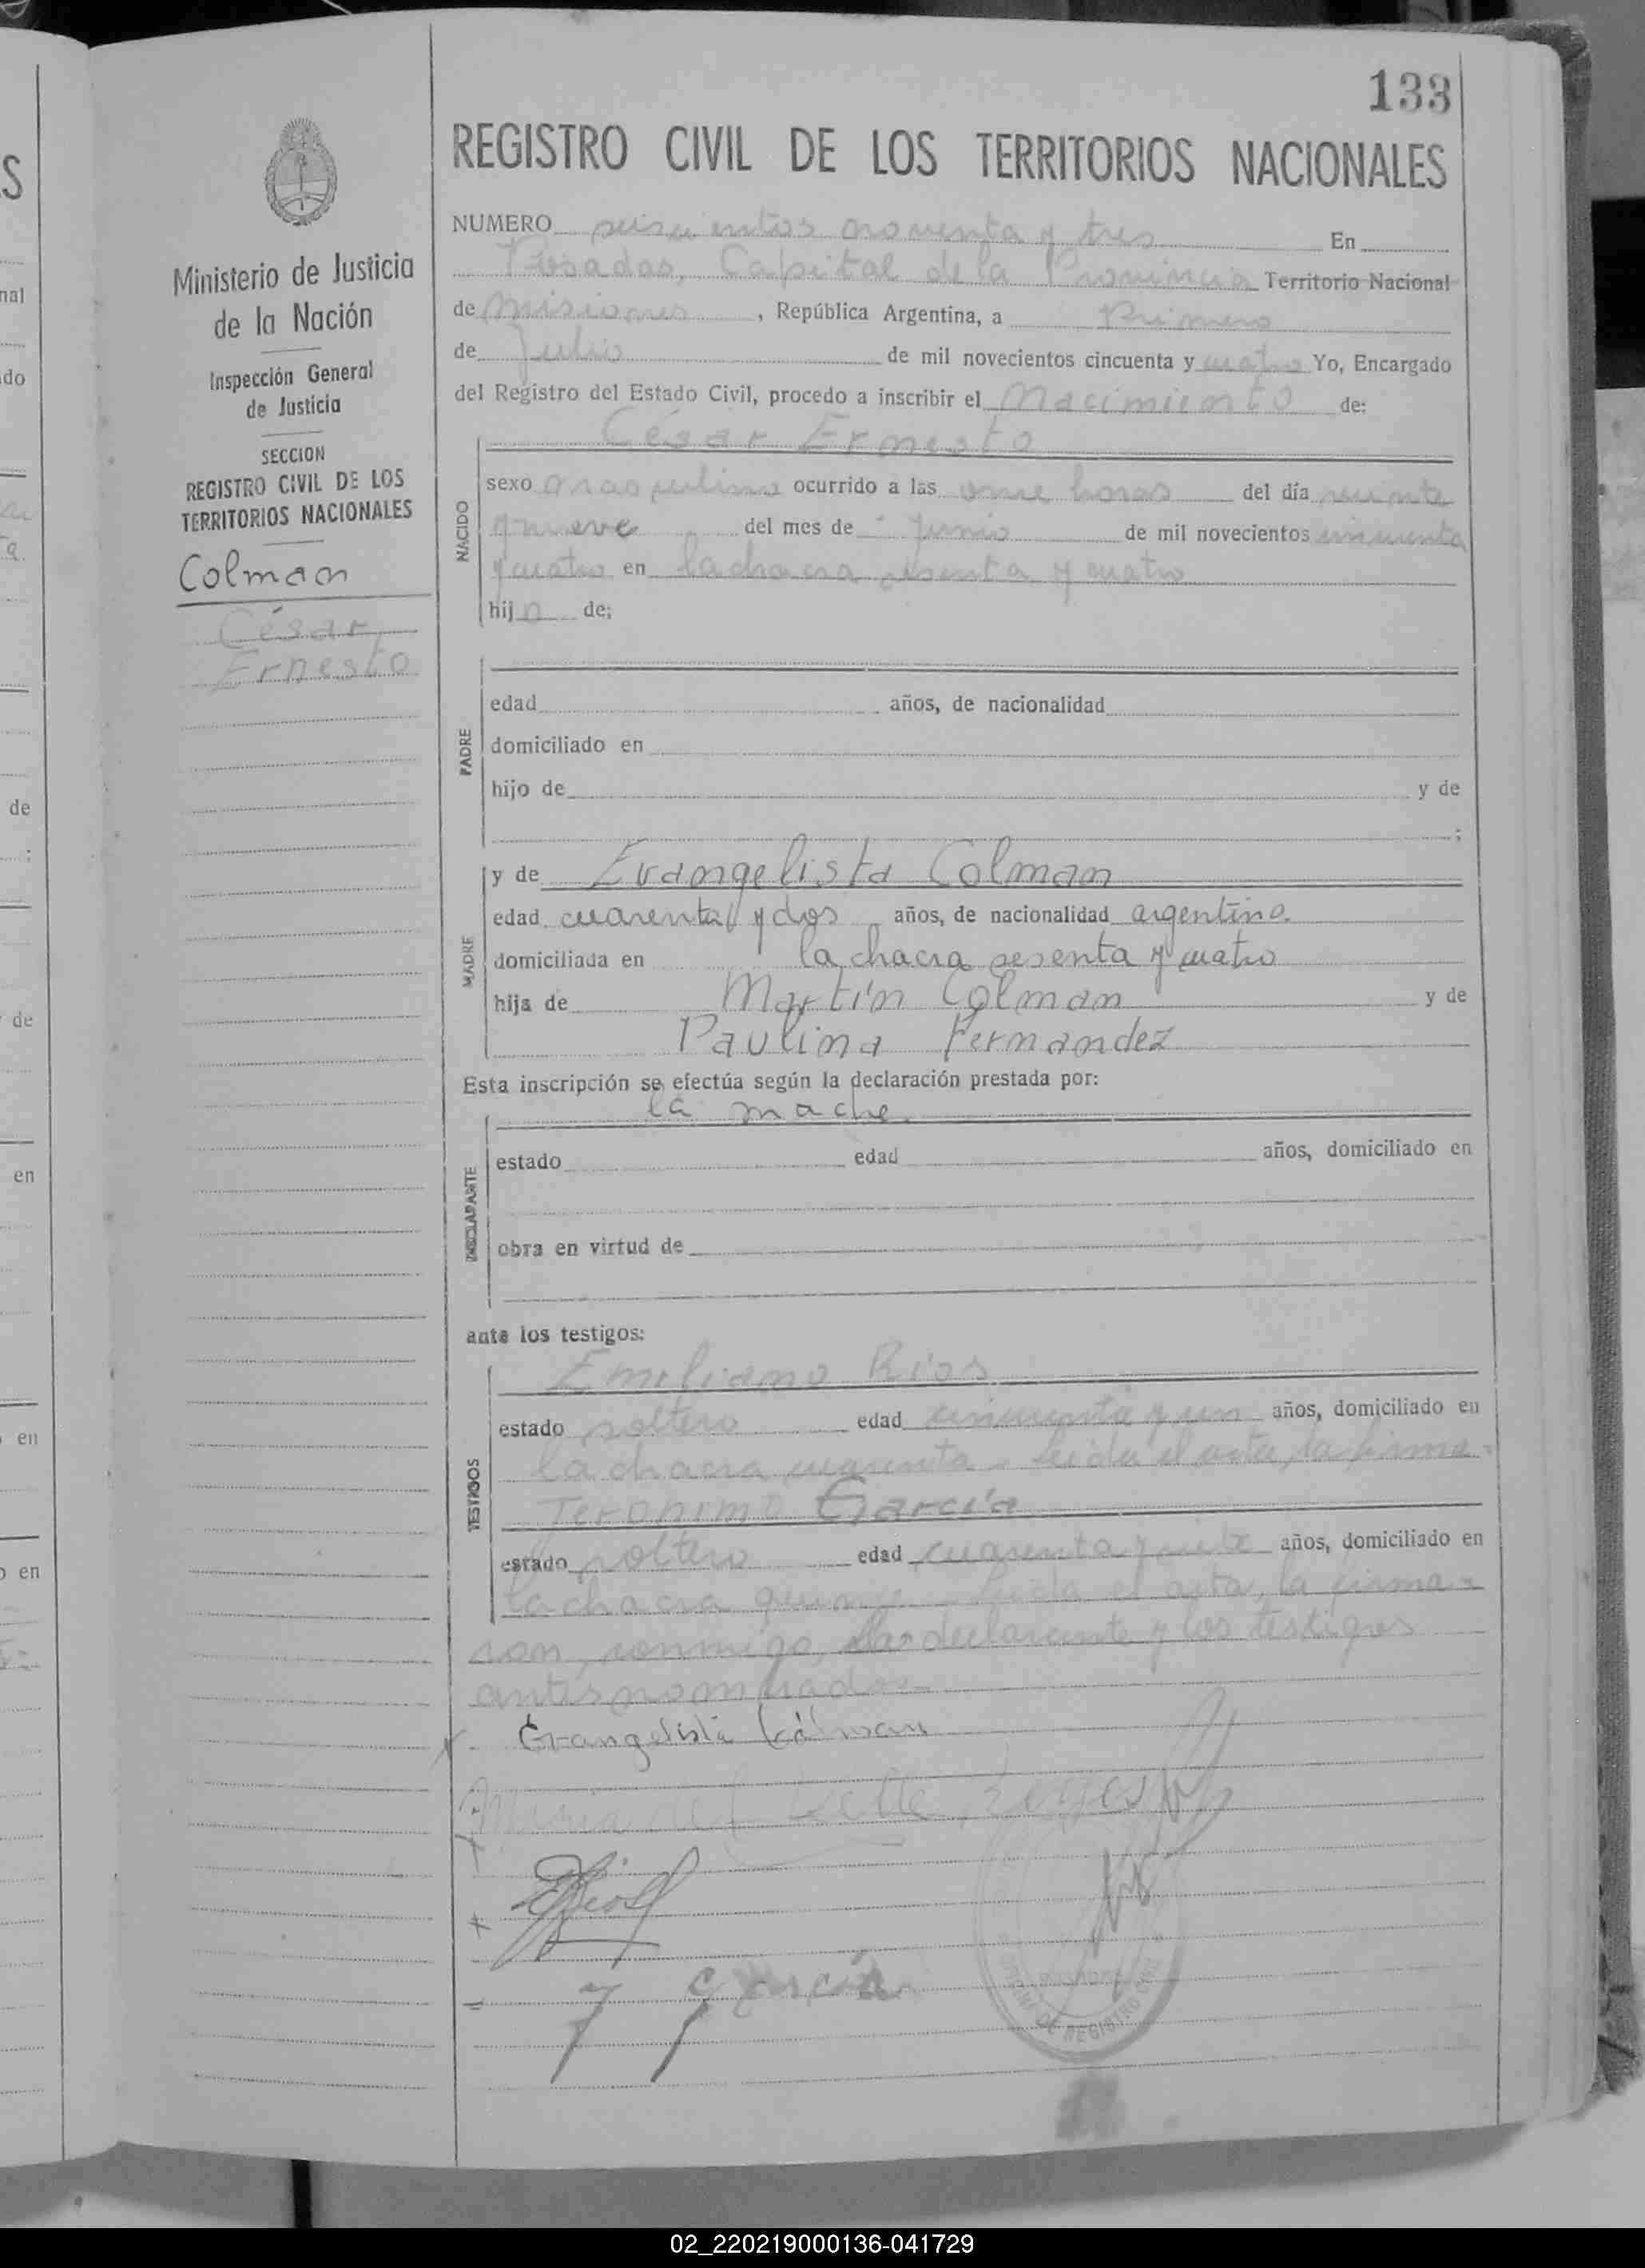 133
REGISTRO CIVIL DE LOS TERRITORIOS NACIONALES
Ministerio de Justicia
de la Nación
Inspección General
de Justicia
SECCION
REGISTRO CIVIL DE LOS
TERRITORIOS NACIONALES
Colman
César
Ernesto
NUMERO seiscientos noventa y tres En
Posadas, Capital de la Provincia Territorio Nacional
de Misiones, República Argentina, a Primero
de Julio de mil novecientos cincuenta y cuatro Yo, Encargado
del Registro del Estado Civil, procedo a inscribir el Nacimiento de:
César Ernesto
NACIDO
sexo masculino ocurrido a las once horas del día veinte
y nueve del mes de Junio de mil novecientos cincuenta
y cuatro en la chacra sesenta y cuatro
hijo de;
PADRE
edad años, de nacionalidad
domiciliado en
hijo de y de
;
MADRE
y de Evangelista Colman
edad cuarenta y dos años, de nacionalidad argentina.
domiciliada en la chacra sesenta y cuatro
hija de Martín Colman y de
Paulina Fernandez
Esta inscripción se efectúa según la declaración prestada por:
la madre.
DECLARANTE
estado edad años, domiciliado en
obra en virtud de
ante los testigos:
TESTIGOS
Emiliano Rios
estado soltero edad cincuenta y un años, domiciliado en
la chacra cuarenta - leida el acta, la firma-
Jeronimo Garcia
estado soltero edad cuarenta y siete años, domiciliado en
la chacra quince - Leida el acta, la firma-
ron, conmigo, la declarante y los testigos
antes nombrados.-
Evangelista Colman
Rios
J Garcia
DE REGISTRO CIVIL
S
nal
do
de
:
de
en
en
en
02_220219000136-041729